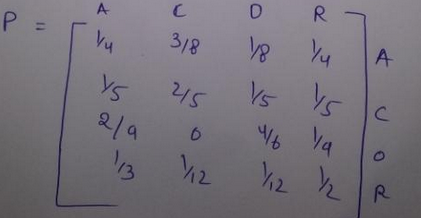 A C D R
P = 1/4 3/8 1/8 1/4 A
1/5 2/5 1/5 1/5 C
2/9 0 4/6 1/9 D
1/3 1/12 1/12 1/2 R